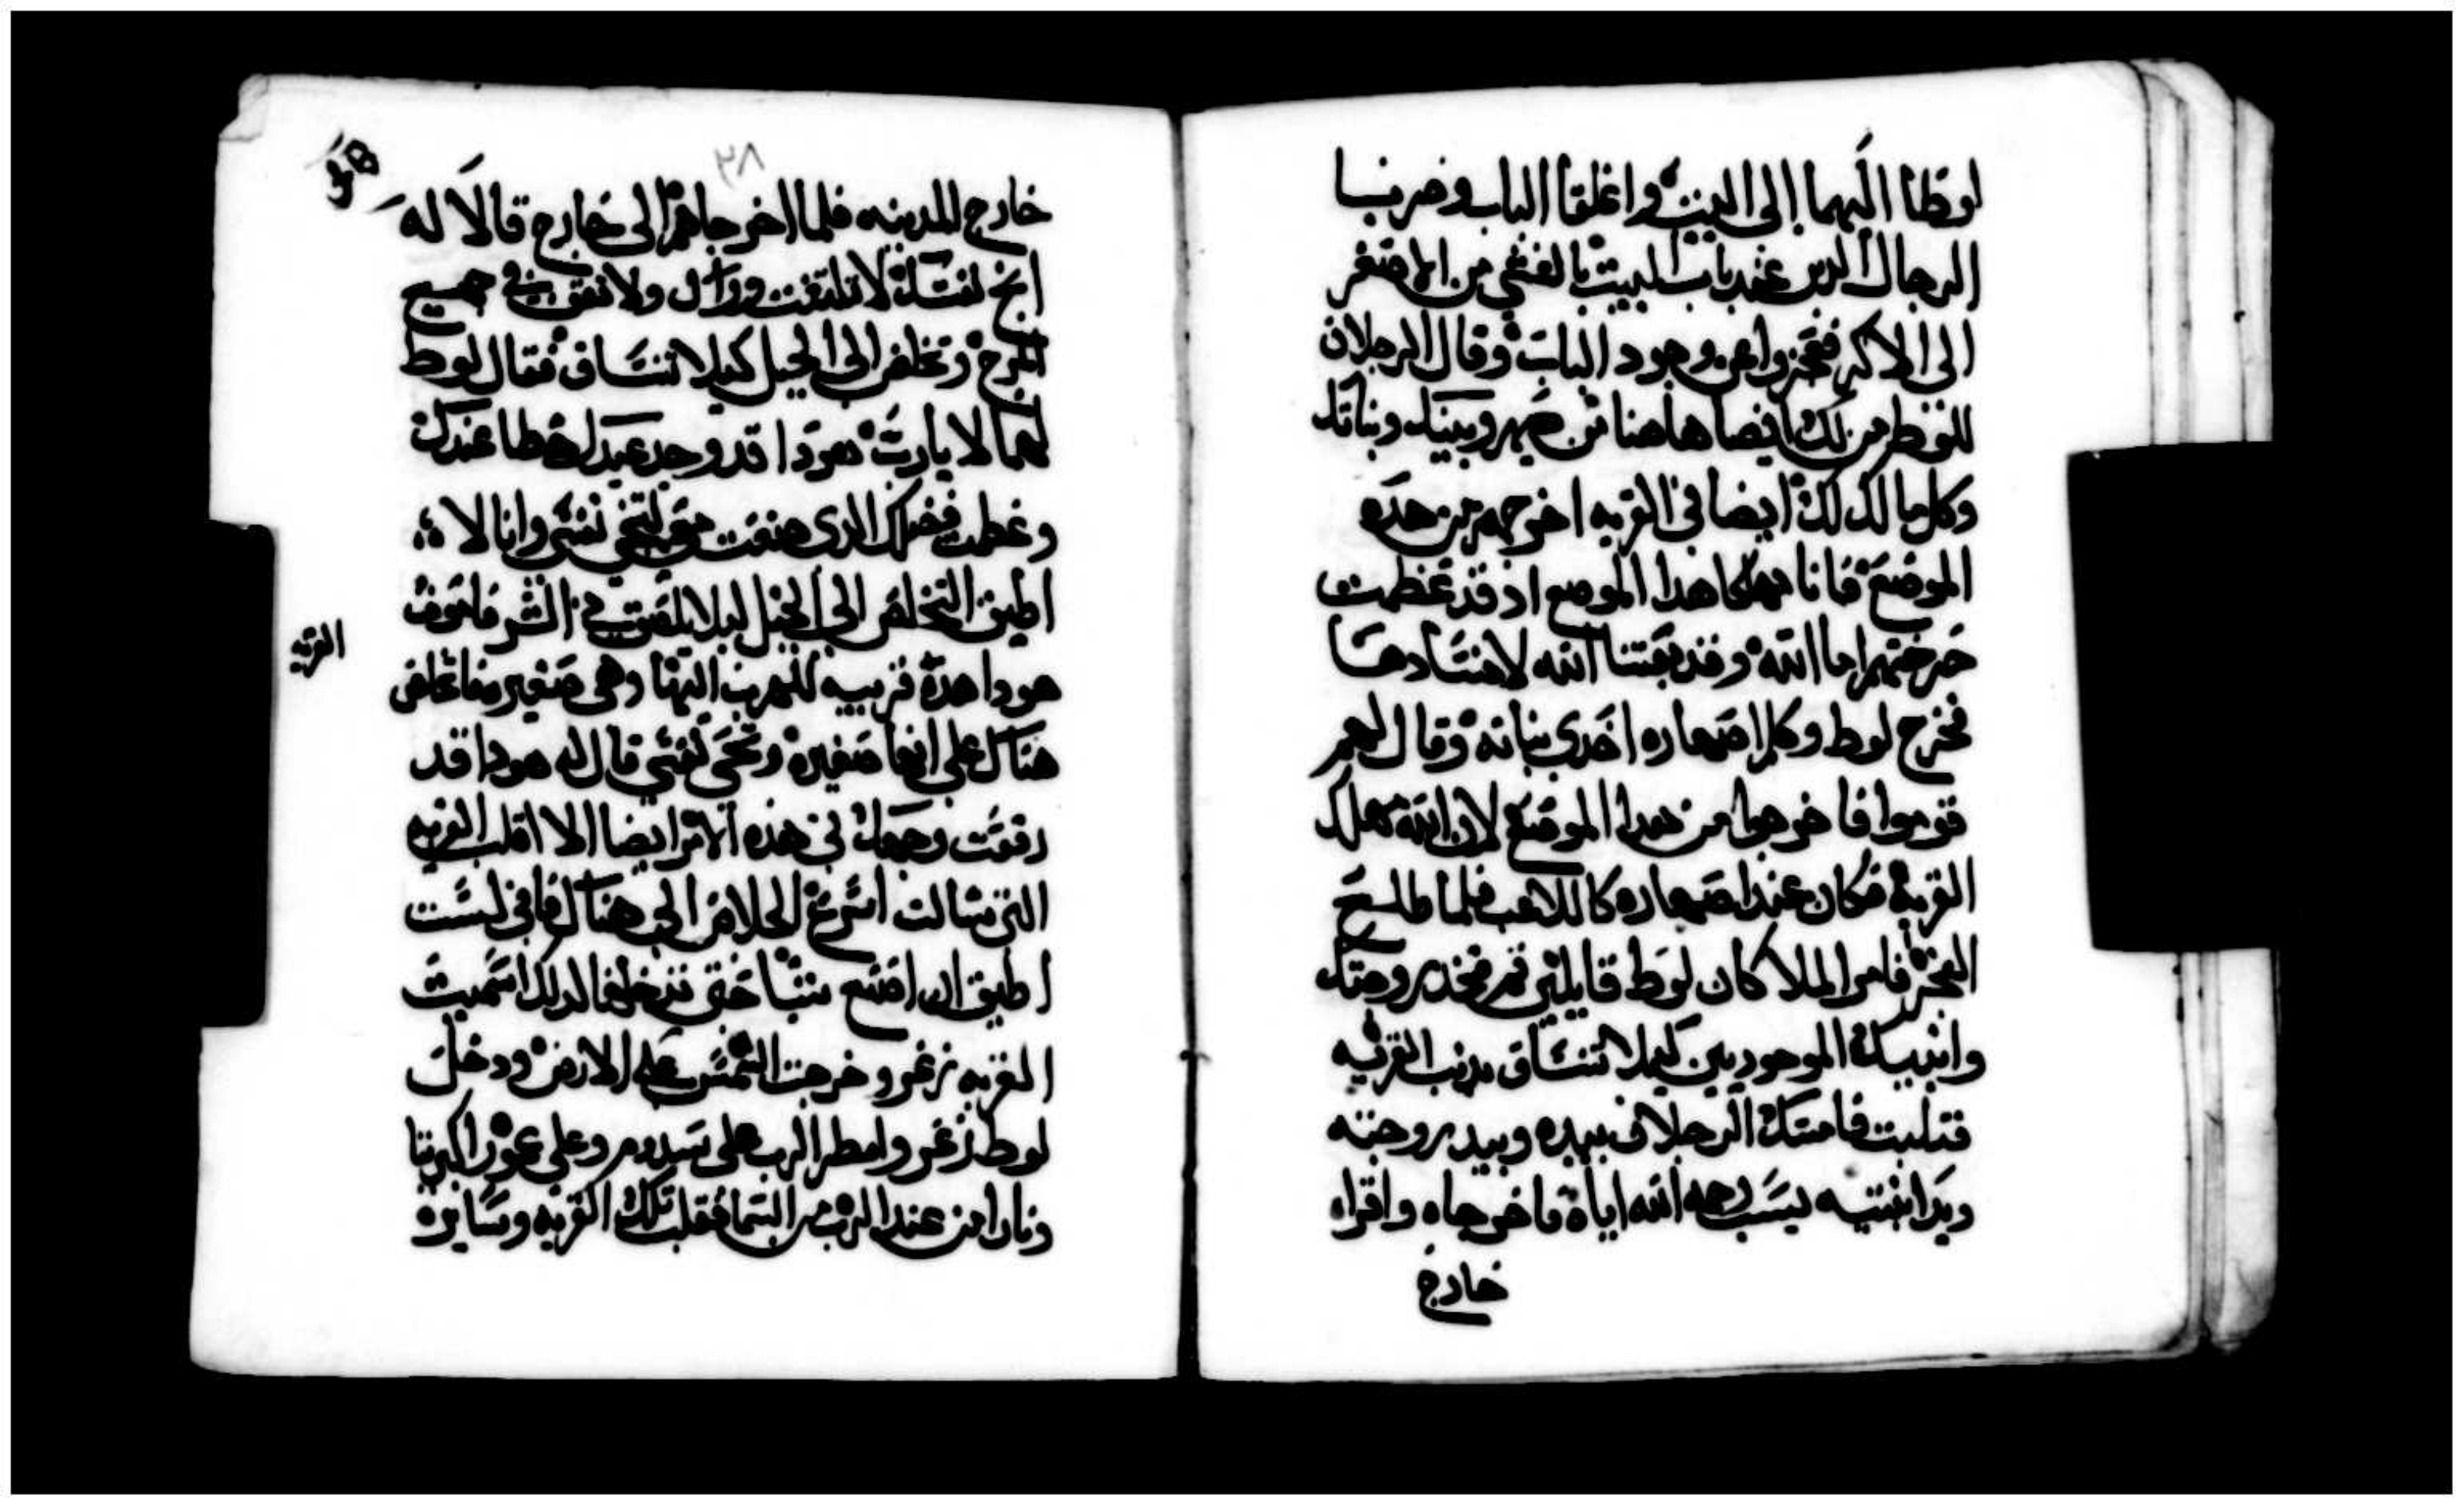 لوطا اليهما الى البيت واغلقا الباب وضربا
الرجال الدين عند باب البيت بالعشى من الاصغر
الى الاكبر فعجزوا عن وجود الباب وقال الرجلان
للوط من لك ايضا هاهنا من صهر وبنيك وبناتك
وكل ما لك لك ايضا في القريه اخرجهم من هده
الموضع فانا مهلكا هدا الموضع اد قد عظمت
صرختهم اما الله وقد بعتنا الله لافسادها
فخرج لوط وكلم اصهاره اخدى بناته وقال لهم
قوموا فاخرجوا من هدا الموضع لان الله مهلك
القريه فكان عند اصهاره كاللاعب فلما طلع
الفجر فامر الملا كان لوط قايلين قم فخد زوجتك
وابنتيك الموجودين كيلا تنساق بدنب القريه
فتلبت فامسك الرجلان بيده وبيد زوجته
ويد ابنتيه بسبب رحمه الله اياه فاخرجاه واقراه
خارج
٢٨
خارج المدينه فلما اخرجاهم الى خارج قالا له
انج نفسك لا تلتفت وراك ولا تقف في جميع
المرج وتخلص الى الجبل كيلا تنساق فقال لوط
لهما لا يارب هودا قد وجد عبدك حظا عندك
وعظمت فضلك الدى صنعت معى لتحى نفسى وانا لا
اطيق التخلص الى الجبل ليلا يلحقني الشر فاموت
هودا هده قريبه للهرب اليها وهى صغير فاتخلص
القريه
هناك على انها صغيره وتحى نفسى قال له هودا قد
رفعت وجهك في هده الامر ايضا الا اقلب القريه
التى سالت اسرع الخلاص الى هناك فانى لست
اطيق ان اصنع شيا حتى تدخلها لدلك اسميت
القريه زغر وخرجت الشمس على الارض ودخل
لوط زغر وامطر الرب على سدوم وعلى عمورا كبريتا
ونارا من عند الرب من السما فقلب تلك القريه وساير